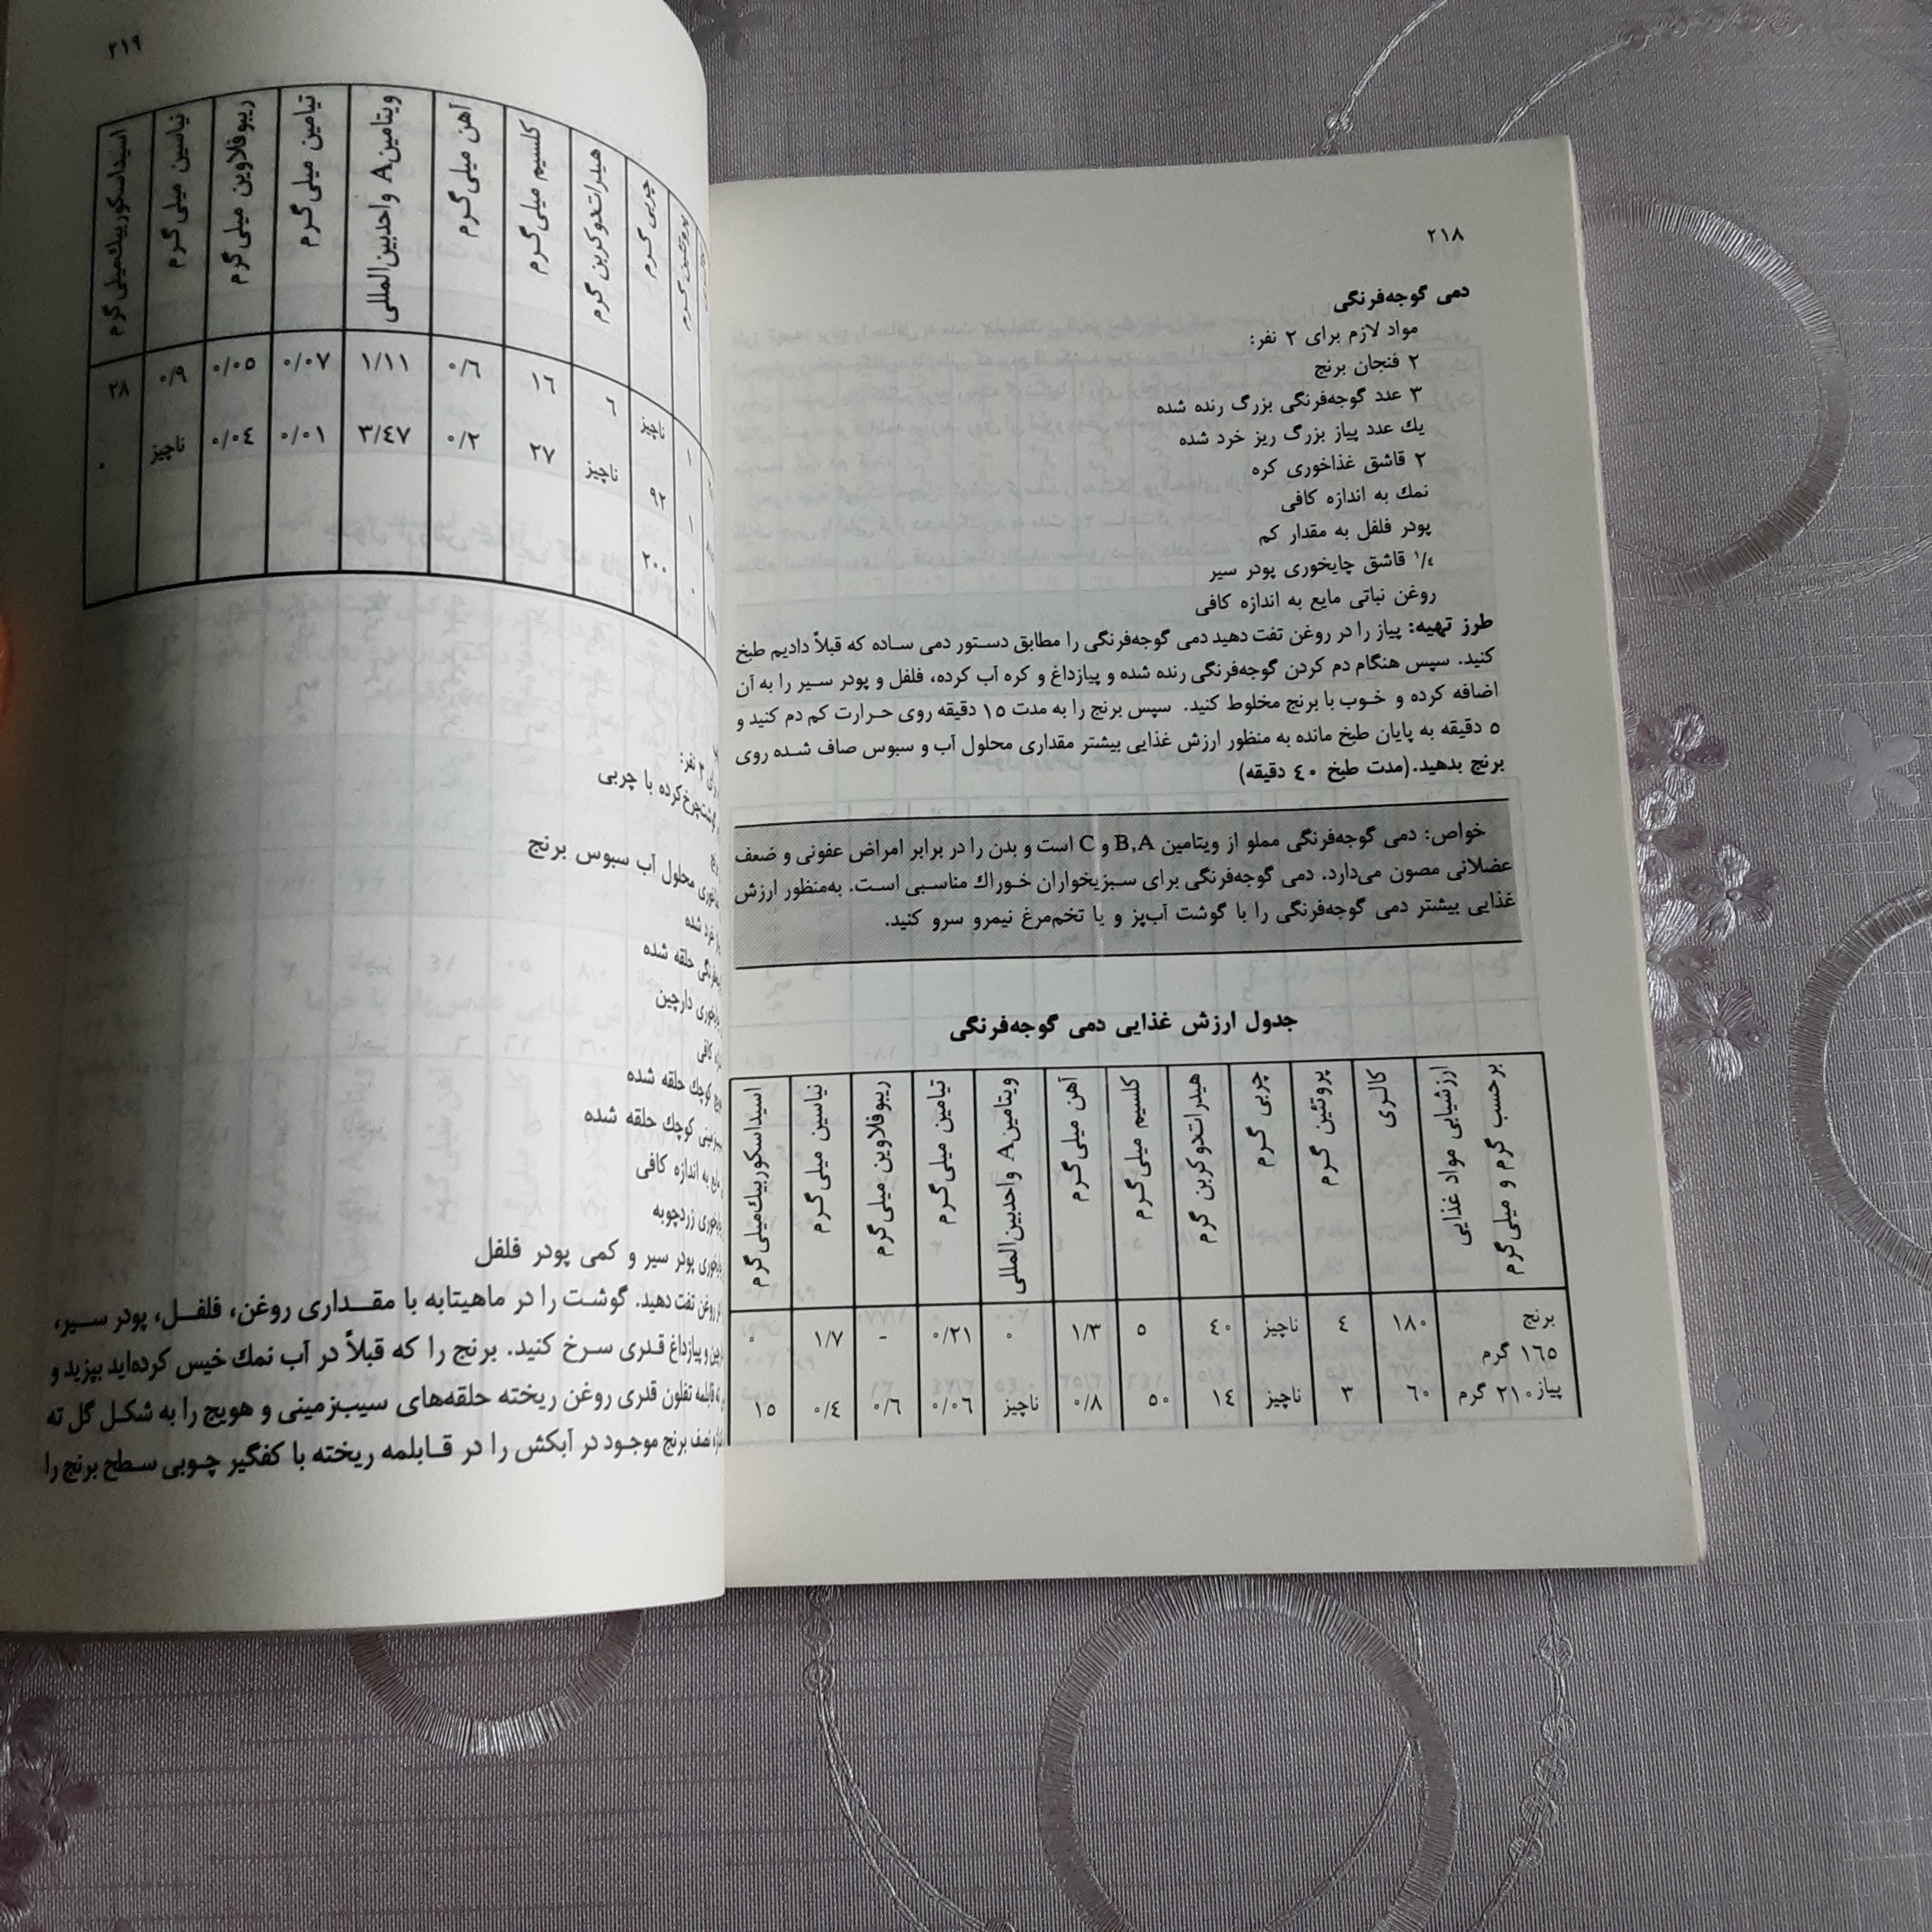 ۲۱۸
دمی گوجه‌فرنگی
مواد لازم برای ۲ نفر:
۲ فنجان برنج
۳ عدد گوجه‌فرنگی بزرگ رنده شده
يك عدد پیاز بزرگ ریز خرد شده
۲ قاشق غذاخوری کره
نمك به اندازه کافی
پودر فلفل به مقدار کم
۱/٤ قاشق چایخوری پودر سیر
روغن نباتی مایع به اندازه کافی
طرز تهیه: پیاز را در روغن تفت دهید دمی گوجه‌فرنگی را مطابق دستور دمی ساده که قبلاً دادیم طبخ
کنید. سپس هنگام دم کردن گوجه‌فرنگی رنده شده و پیازداغ و کره آب کرده، فلفل و پودر سیر را به آن
اضافه کرده و خوب با برنج مخلوط کنید. سپس برنج را به مدت ۱۵ دقیقه روی حرارت کم دم کنید و
۵ دقیقه به پایان طبخ مانده به منظور ارزش غذایی بیشتر مقداری محلول آب و سبوس صاف شده روی
برنج بدهید.(مدت طبخ ٤۰ دقیقه)
خواص: دمی گوجه‌فرنگی مملو از ویتامین B,A و C است و بدن را در برابر امراض عفونی و ضعف
عضلانی مصون می‌دارد. دمی گوجه‌فرنگی برای سبزیخواران خوراك مناسبی است. به‌منظور ارزش
غذایی بیشتر دمی گوجه‌فرنگی را با گوشت آب‌پز و یا تخم‌مرغ نیمرو سرو کنید.
جدول ارزش غذایی دمی گوجه‌فرنگی
برحسب گرم و میلی‌گرم
ارزشیابی مواد غذایی
کالری
پروتئین گرم
چربی گرم
هیدرات‌دوکربن گرم
کلسیم میلی‌گرم
آهن میلی‌گرم
ویتامین A واحدبین‌المللی
تیامین میلی‌گرم
ریبوفلاوین میلی‌گرم
نیاسین میلی‌گرم
اسیداسکوربيك‌میلی‌گرم
برنج ۱٦۵ گرم ۱۸۰ ٤ ناچیز ٤۰ ۵ ۱/۳ ۰ ۰/۲۱ - ۱/۷ ۰
پیاز ۲۱۰ گرم ٦۰ ۳ ناچیز ۱٤ ۵۰ ۰/۸ ناچیز ۰/۰٦ ۰/٦ ۰/٤ ۱۵
۲۱۹
پروتئین گرم
چربی گرم
هیدرات‌دوکربن گرم
کلسیم میلی‌گرم
آهن میلی‌گرم
ویتامین A واحدبین‌المللی
تیامین میلی‌گرم
ریبوفلاوین میلی‌گرم
نیاسین میلی‌گرم
اسیداسکوربيك‌میلی‌گرم
۱ ناچیز ٦ ۱٦ ۰/٦ ۱/۱۱ ۰/۰۷ ۰/۰۵ ۰/۹ ۲۸
۱ ۹۲ ناچیز ۲۷ ۰/۲ ۳/٤۷ ۰/۰۱ ۰/۰٤ ناچیز ۰
۰ ۲۰۰
نفر:
گوشت‌چرخ‌کرده با چربی
محلول آب سبوس برنج
خرد شده
حلقه شده
دارچین
کافی
کوچك حلقه شده
کوچك حلقه شده
مایع به اندازه کافی
زردچوبه
پودر سیر و کمی پودر فلفل
روغن تفت دهید. گوشت را در ماهیتابه با مقداری روغن، فلفل، پودر سیر،
و پیازداغ قدری سرخ کنید. برنج را که قبلاً در آب نمك خیس کرده‌اید بپزید و
قابلمه تفلون قدری روغن ریخته حلقه‌های سیب‌زمینی و هویج را به شکل گل ته
نصف برنج موجود در آبکش را در قابلمه ریخته با کفگیر چوبی سطح برنج را